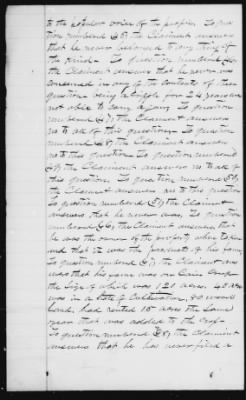 to the popular voice of the people. To ques
tion numbered (5) the Claimant answers
that he never belonged to any thing of
the kind. To question numbered
the Claimant answers that he never was
concerned in any of the contents of this
question being a cripple for 24 years
not able to carry a gun. To question
numbered (7) the Claimant answers
no to all of this question. To question
numbered (8) the Claimant answers
no to this question. To question numbered
the Claimant answers no to all of
this question. To question numbered
the Claimant answers no to this question
To question numbered the Claimant
answers that he never was. To question
numbered the Claimant answers that
he was the owner of the property when taken
and that he was the of his farm
To question numbered the Claimant ans
wers that his farm was on Creek
the size of which was 120 acres. 40 acres
was in a state of Cultivation, 80 woods
land, had rented 15 acres the same
year that was added to the crop
To question numbered the Claimant
answers that he has never filed a